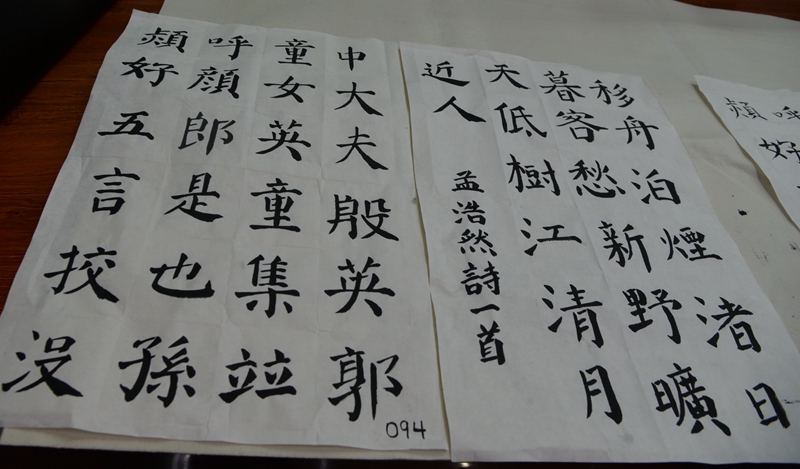 移舟泊煙渚日
暮客愁新野曠
天低樹江清月
近人
孟浩然詩一首
中大夫殷英郭
童女英童集竝
呼顏郎是也孫
頗好五言挍没
094
呼
頗好